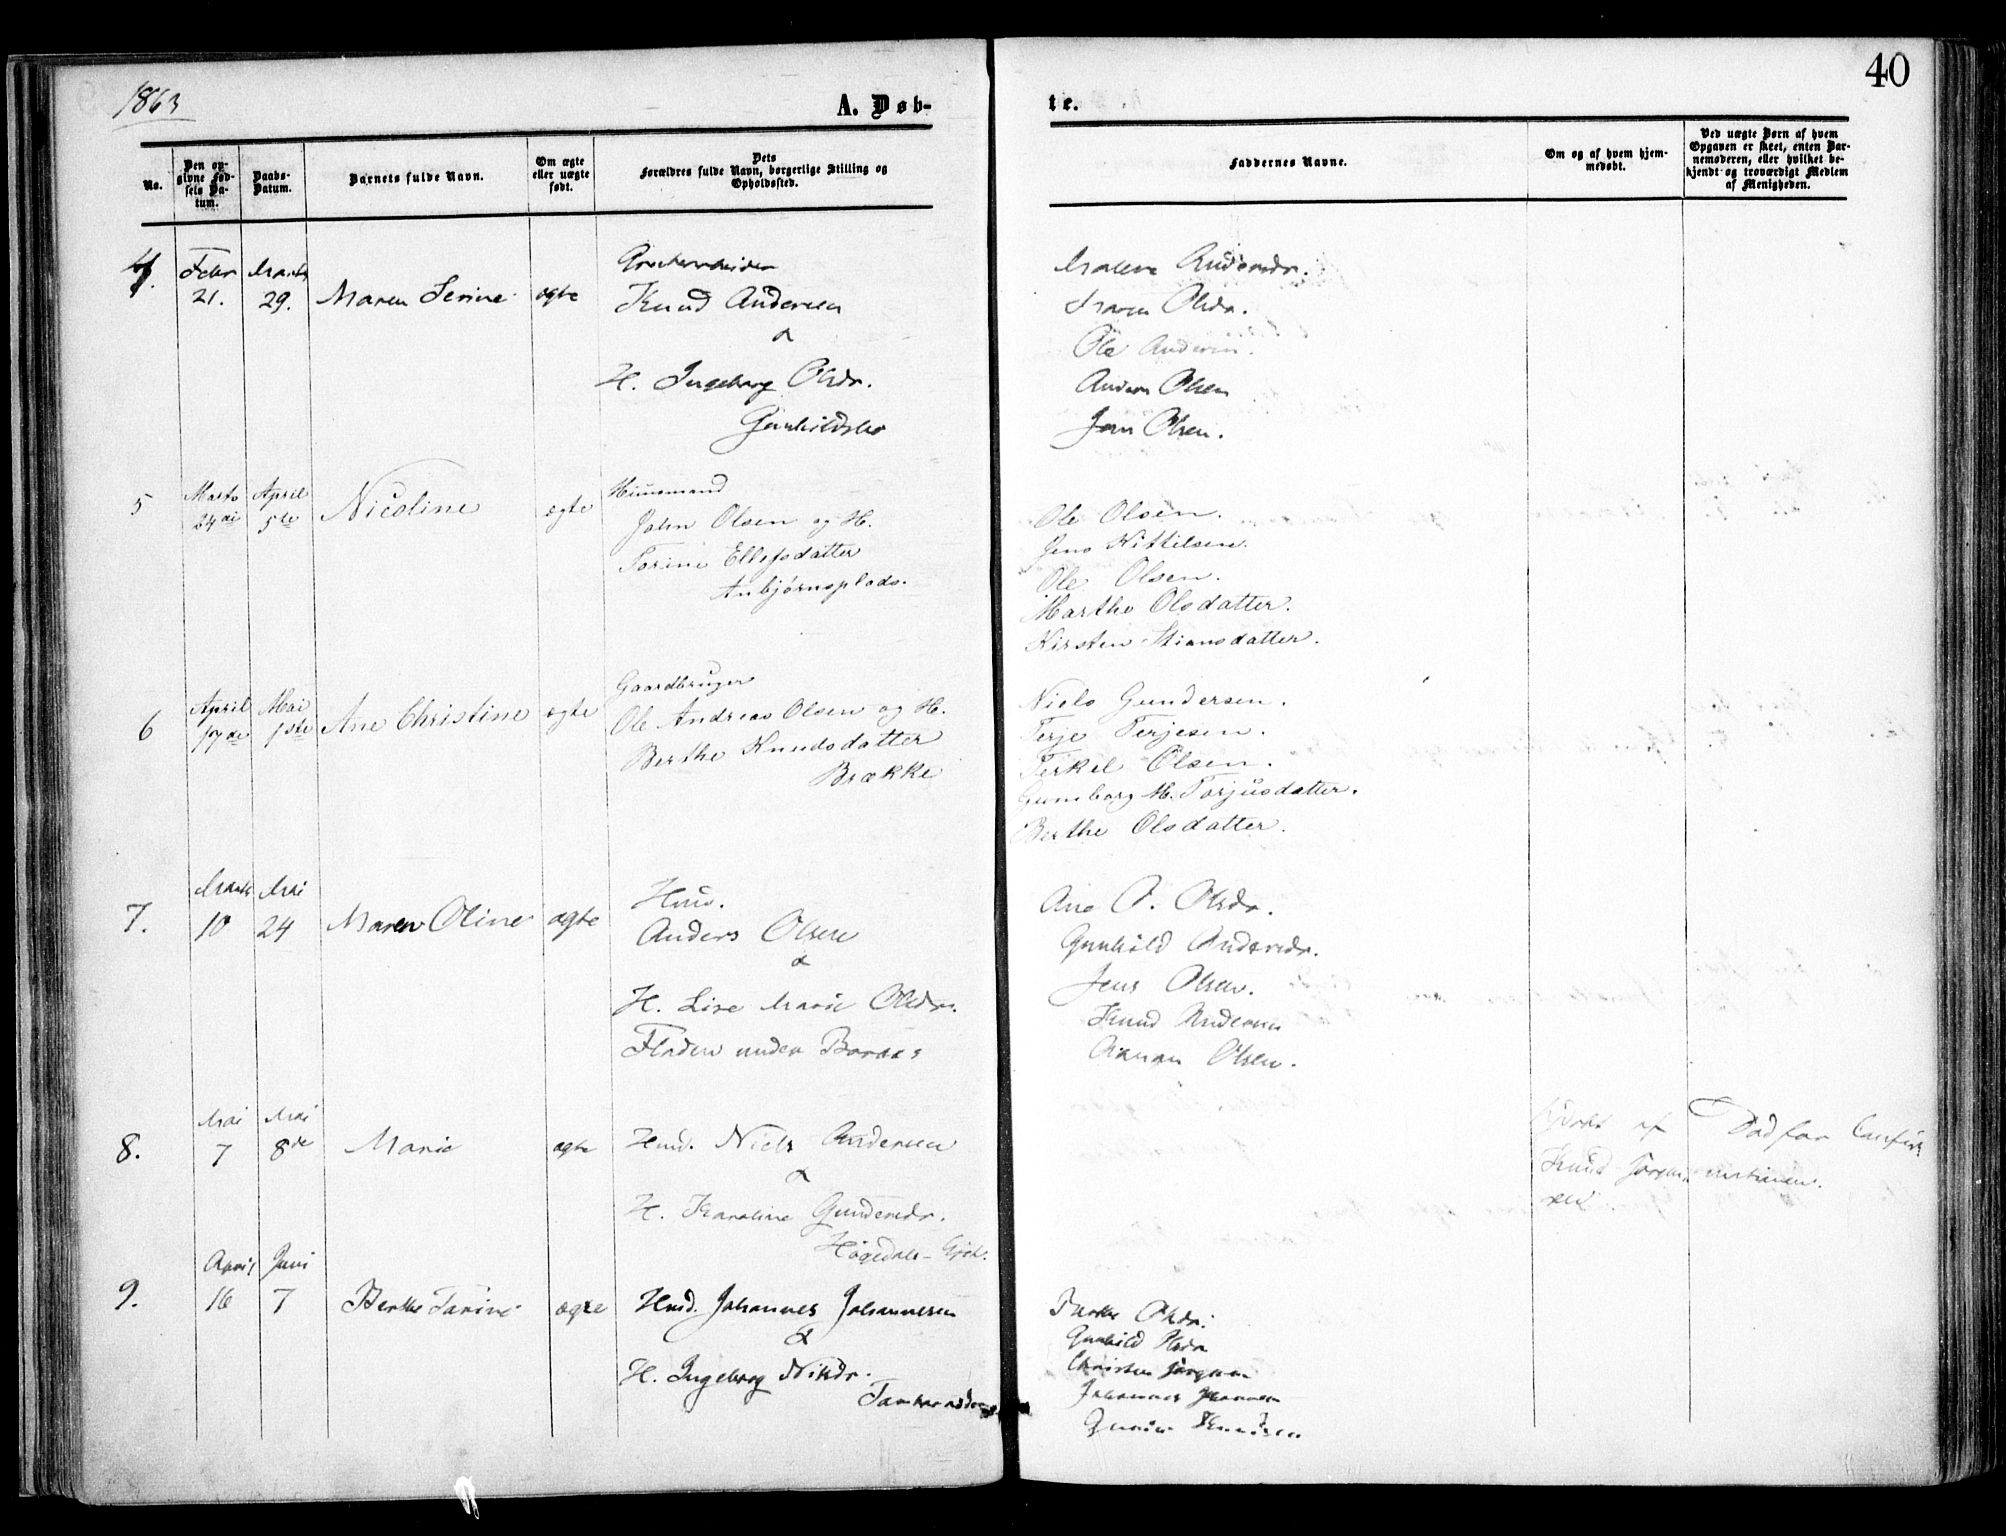 1863
A. Døb-
te.
40
No.
Den op-
givne Fød-
sels Da-
tum.
Daabs-
Datum.
Barnets fulde Navn.
Om ægte
eller uægte
født.
Dets
Forældres fulde Navn, borgerlige Stilling og
Opholdssted.
Faddernes Navne.
Om og af hvem hjem-
medøbt.
Ved uægte Børn af hvem
Opgaven er skeet, enten Bar-
nemoderen, eller hvilket be-
kjendt og troværdigt Medlem
af Menigheden.
4.
Febr
21.
Marts
29.
Maren Serine
ægte
Knud Andersen
&
H. Ingeborg Olsdr.
Gunhildsbo
Malene Andersdr.
Maren Olsdr.
Ole Andersen.
Anders Olsen
Jens Olsen.
5
Marts
24de
April
5te
Nicoline
ægte
Huusmand
John Olsen og H.
Torine Ellefsdatter
Anbjørnsplads.
Ole Olsen.
Jens Kittilsen.
Ole Olsen.
Marthe Olsdatter.
Kirsten Stiansdatter.
6
April
17de
Mai
1ste
Ane Christine
ægte
Gaardbruger
Ole Andreas Olsen og H.
Berthe Knudsdatter
Brække
Niels Gundersen.
Terje Terjesen.
Terkel Olsen.
Gunnborg M. Torjusdatter.
Berthe Olsdatter.
7.
Marts
10
Mai
24
Maren Oline
ægte
Huus.
Anders Olsen
&
H. Lise Marie Olsdr.
Fladen underBoraas
Ane O. Olsdr.
Gunhild Andersdr.
Jens Olsen.
Knud Andersen
Olsen.
8.
Mai
7
Mai
8de
Marie
ægte
Hmd. Niels Andersen
&
H. Karoline Gundersdr.
Høgedals-
af
Knud Jørgen-
sen.
Død før Confir-
mationen.
9.
April
16
Juni
7
Berthe Tarine
ægte
Hmd. Johannes Johannesen
&
H. Ingeborg Nilsdr.
Berthe Olsdr.
Gunhild Olsdr
Christen Jørgensen
Johannes Johannesen
Knudsen